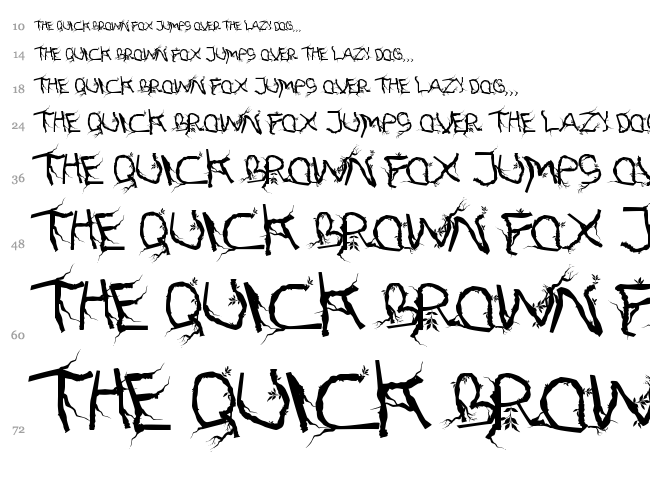 10 THE QUICK BROWN FOX JUMPS OVER THE LAZY DOG,,,
14 THE QUICK BROWN FOX JUMPS OVER THE LAZY DOG,,,
18 THE QUICK BROWN FOX JUMPS OVER THE LAZY DOG,,,
24 THE QUICK BROWN FOX JUMPS OVER THE LAZY DOG
36 THE QUICK BROWN FOX JUMPS OV
48 THE QUICK BROWN FOX J
60 THE QUICK BROWN F
72 THE QUICK BROW